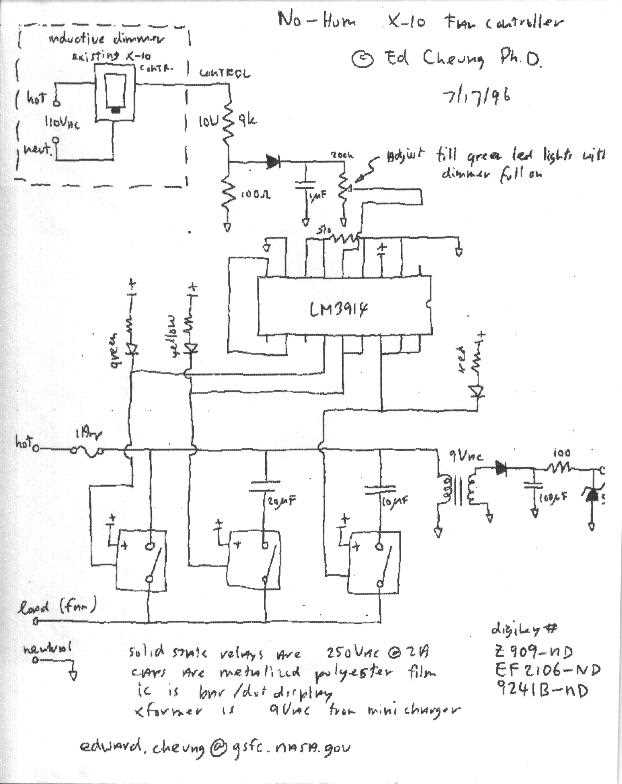 No-Hum X-10 Fan Controller
© Ed Cheung Ph.D.
7/17/96
inductive dimmer
existing X-10
CONTR.
CONTROL
hot
110VAC
neut.
10W 9k
100Ω
1µF
200k
Adjust till green led lights with
dimmer full on
510
+
LM3914
+
+
+
green
yellow
red
hot
1A
9VAC
100
20µF
10µF
100µF
+
+
+
+
+
+
load (fan)
neutral
solid state relays are 250VAC @ 2A
caps are metalized polyester film
ic is bar/dot display
xformer is 9VAC from minicharger
digikey #
Z909-ND
EF2106-ND
9241B-ND
edward.cheung@gsfc.nasa.gov